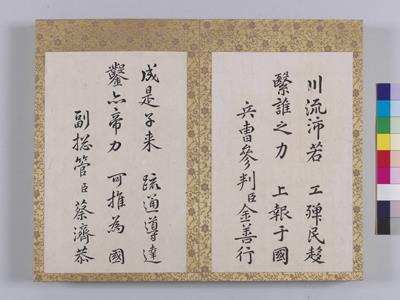 川流沛若 工殫民趍
繄誰之力 上報于國
兵曹參判臣金善行
成是子来 疏通導達
鑿亦帝力 可推為國
副摠管臣蔡濟恭